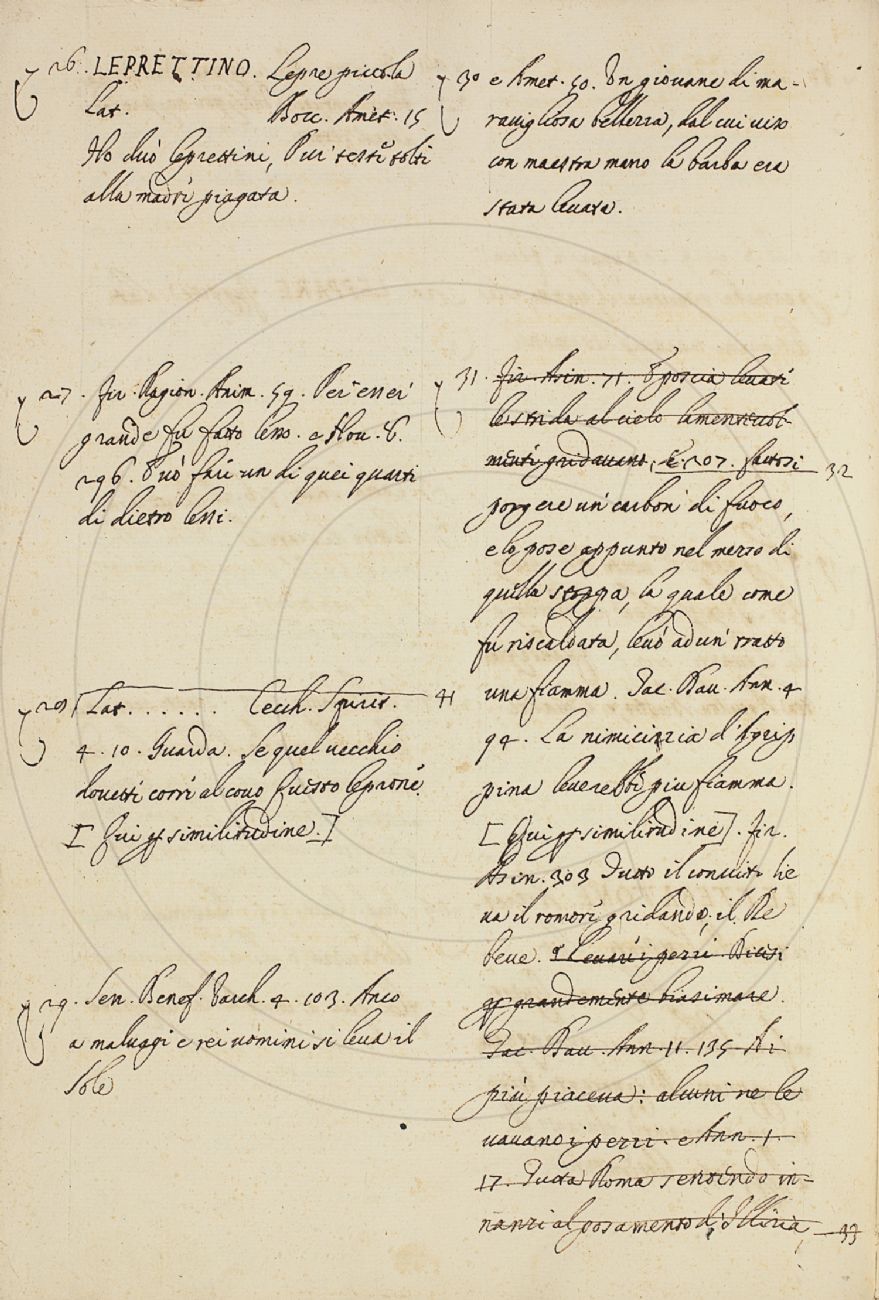 26. LEPRETTINO. Lepre piccola
Lat. Bocc. Amet. 15
Ho duo leprettini, Pur testè tolti
alla madre piagata.
27. fir. Ragion. Anim. 59. Per esser
grande fu fatto lesso. e Nov. 6.
296. Può fare un di quei quarti
di dietro lessi.
28 Lat. . . . . . Cecch. Spirit. 41
4. 10. Guarda. Se quel vecchio
dovessi corre al covo questo leprone.
[Qui similitudine.]
29. Sen. Benef. Varch. 4. 103. Anco
a malvagi e rei uomini si leva il
Sole
30 e Amet. 50. Un giovane di ma-
ravigliosa bellezza, dal cui viso
con maestra mano la barba era
stata levata.
31. fir. Asin. 71. E poscia levate
le strida al cielo lamentevol-
mente gridavano, E 207. fattosi 32
porgere un carbone di fuoco,
e lo pose appunto nel mezzo di
quella stoppa, la quale come
fu riscaldata, levò ad un tratto
una fiamma. Tac. Dav. Ann. 4
94. La nimicizia d'Agrip
pina leverebbe piu fiamma.
[Qui similitudine]. fir.
Asin. 303 Tutto il convito lie
va il romore gridando, il Re
beve. Levare i pezzi. Dicesi
grandemente biasimare.
Tac. Dav. Ann. 11. 135 Ai
più piaceva: alcuni ne le
vavano i pezzi. e Ann. 1.
17. Tutta Roma sentendo in-
nanzi al posamento di Illiria, 33